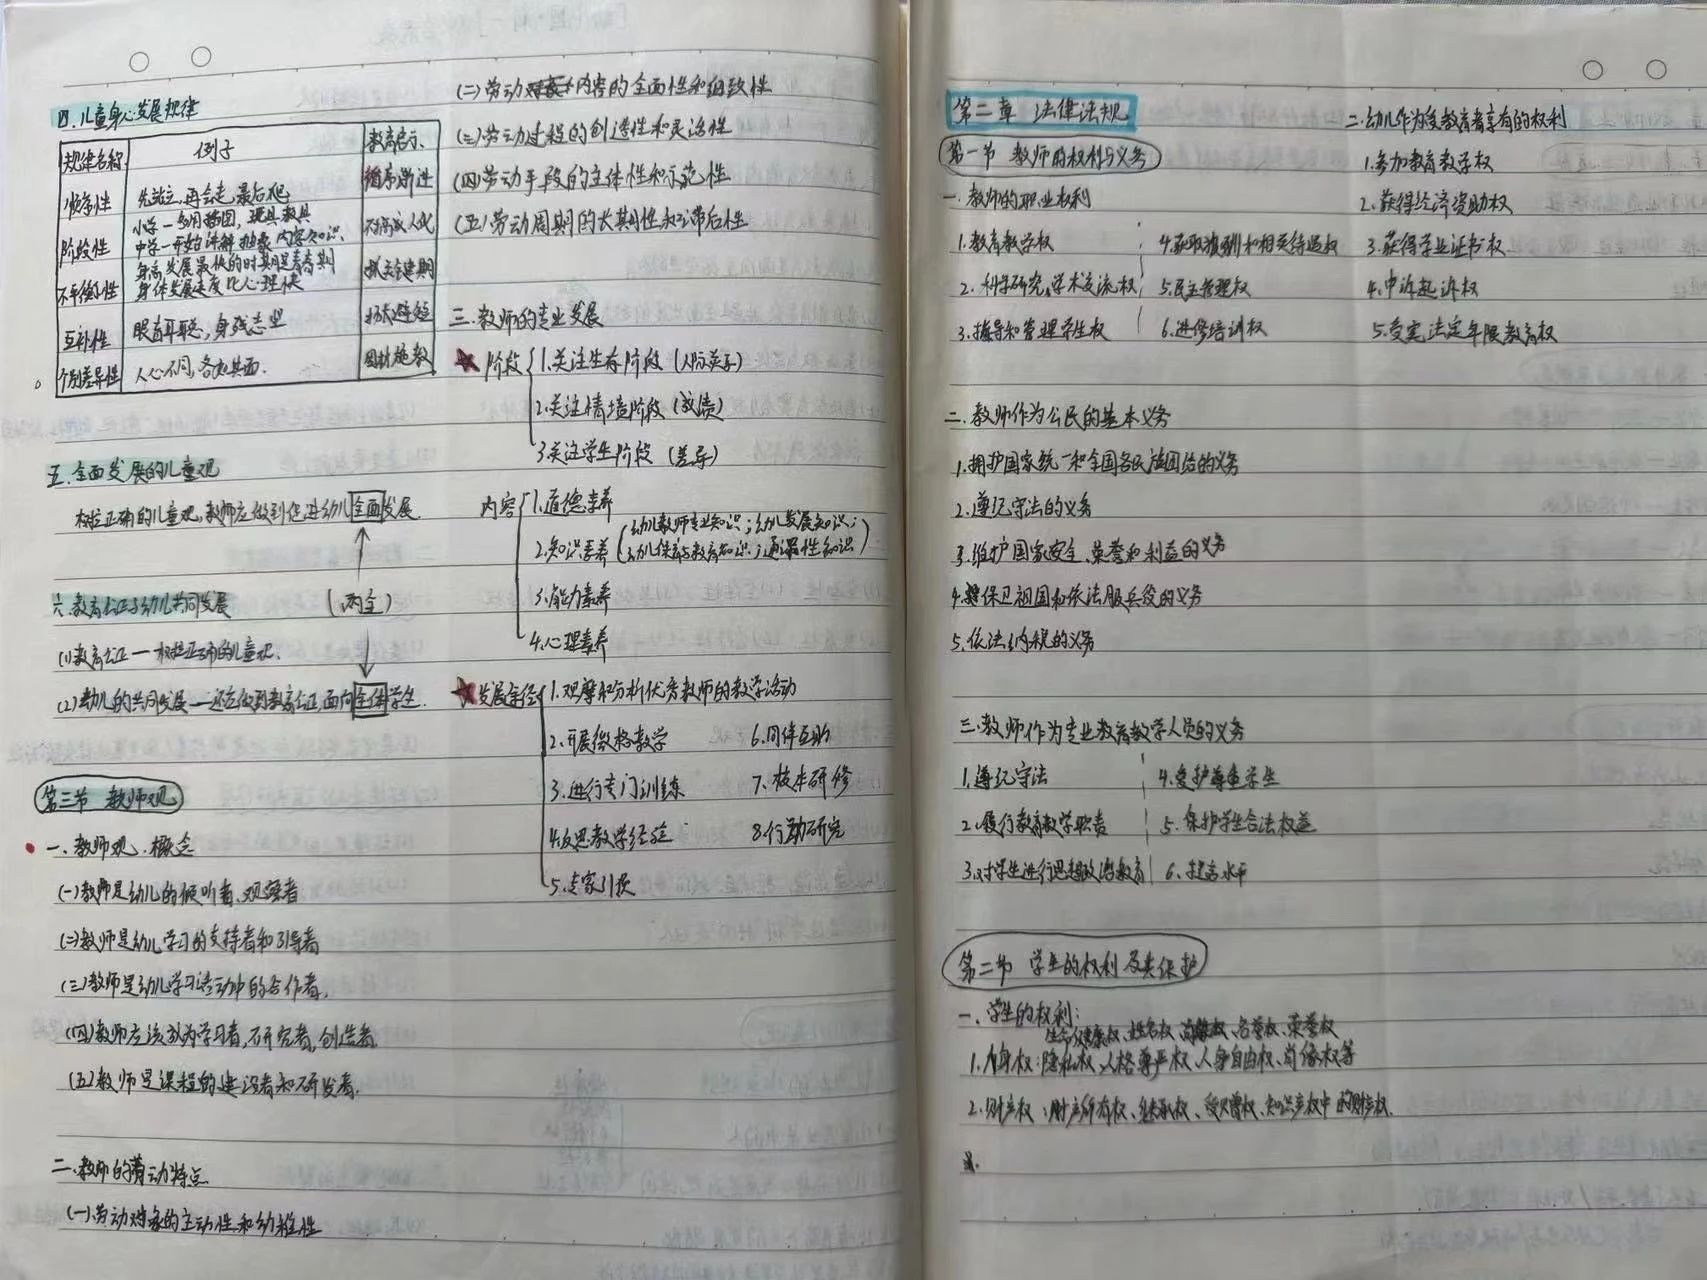 四.儿童身心发展规律
规律名称 例子 教育启示
顺序性 先站立,再会走,最后爬 循序渐进
阶段性 小学—多用插图,现具教具
中学—开始讲解抽象内容知识. 不搞成人化
不平衡性 身高发展最快的时期是青春期
身体发展速度比心理快 抓关键期
互补性 眼盲耳聪,身残志坚 扬长避短
个别差异性 人心不同,各如其面. 因材施教
五.全面发展的儿童观
树立正确的儿童观,教师应做到促进幼儿全面发展.
六.教育公正与幼儿共同发展 (两全)
(1)教育公正—树立正确的儿童观.
(2)幼儿的共同发展—还应做到教育公正,面向全体学生.
第三节 教师观
一.教师观.概念
(一)教师是幼儿的倾听者、观察者
(二)教师是幼儿学习的支持者和引导者
(三)教师是幼儿学习活动中的合作者.
(四)教师应该成为学习者,研究者,创造者.
(五)教师是课程的建设者和研发者.
二.教师的劳动特点
(一)劳动对象的主动性和幼稚性
(二)劳动内容的全面性和细致性
(三)劳动过程的创造性和灵活性
(四)劳动手段的主体性和示范性
(五)劳动周期的长期性和滞后性
三.教师的专业发展
★ 阶段 1.关注生存阶段 (人际关系)
2.关注情境阶段 (成绩)
3.关注学生阶段 (差异)
内容 1.道德素养
2.知识素养 (幼儿教师专业知识;幼儿发展知识;
幼儿保育与教育知识;通识性知识)
3.能力素养
4.心理素养
★ 发展途径 1.观摩和分析优秀教师的教学活动
2.开展微格教学 6.同伴互助
3.进行专门训练 7.校本研修
4.反思教学经验 8.行动研究
5.专家引领
第二章 法律法规
第一节 教师的权利与义务
一.教师的职业权利
1.教育教学权 4.获取报酬和相关待遇权
2.科学研究、学术交流权 5.民主管理权
3.指导和管理学生权 6.进修培训权
二.幼儿作为受教育者享有的权利
1.参加教育教学权
2.获得经济资助权
3.获得学业证书权
4.申诉起诉权
5.受完法定年限教育权
二.教师作为公民的基本义务
1.拥护国家统一和全国各民族团结的义务
2.遵纪守法的义务
3.维护国家安全、荣誉和利益的义务
4.保卫祖国和依法服兵役的义务
5.依法纳税的义务
三.教师作为专业教育教学人员的义务
1.遵纪守法 4.爱护尊重学生
2.履行教育教学职责 5.保护学生合法权益
3.对学生进行思想政治教育 6.提高水平
第二节 学生的权利及其保护
一.学生的权利:
生命健康权、姓名权、肖像权、名誉权、荣誉权
1.人身权:隐私权、人格尊严权、人身自由权、肖像权等
2.财产权:财产所有权、继承权、受赠权、知识产权中的财产权.